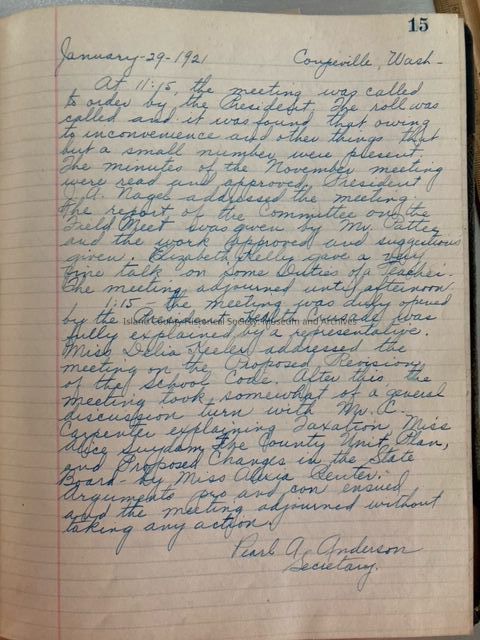 15
January-29-1921 Coupeville, Wash-
At 11:15, the meeting was called
to order by the President. The roll was
called and it was found that owing
to inconvenience and other things that
but a small number were present.
The minutes of the November meeting
were read and approved. President
A. Nagel addressed the meeting.
The report of the Committee on the
Field Meet was given by Mr. Patter
and the work approved and suggestions
given. Elizabeth Kelly gave a very
fine talk on Some Duties of a Teacher.
The meeting adjourned until afternoon.
1:15 - the meeting was duly opened
by the President. Health Crusade was
Island County Historical Society Museum and Archives
fully explained by a representative.
Miss Delia Keeler addressed the
meeting on the Proposed Revision
of the School Code. After this, the
meeting took somewhat of a general
discussion turn with Mr. C.
Carpenter explaining Taxation, Miss
Alice Suydam, The County Unit Plan,
and Proposed Changes in the State
Board - by Miss Reuter.
Arguments pro and con ensued
and the meeting adjourned without
taking any action.
Pearl A. Anderson
Secretary.